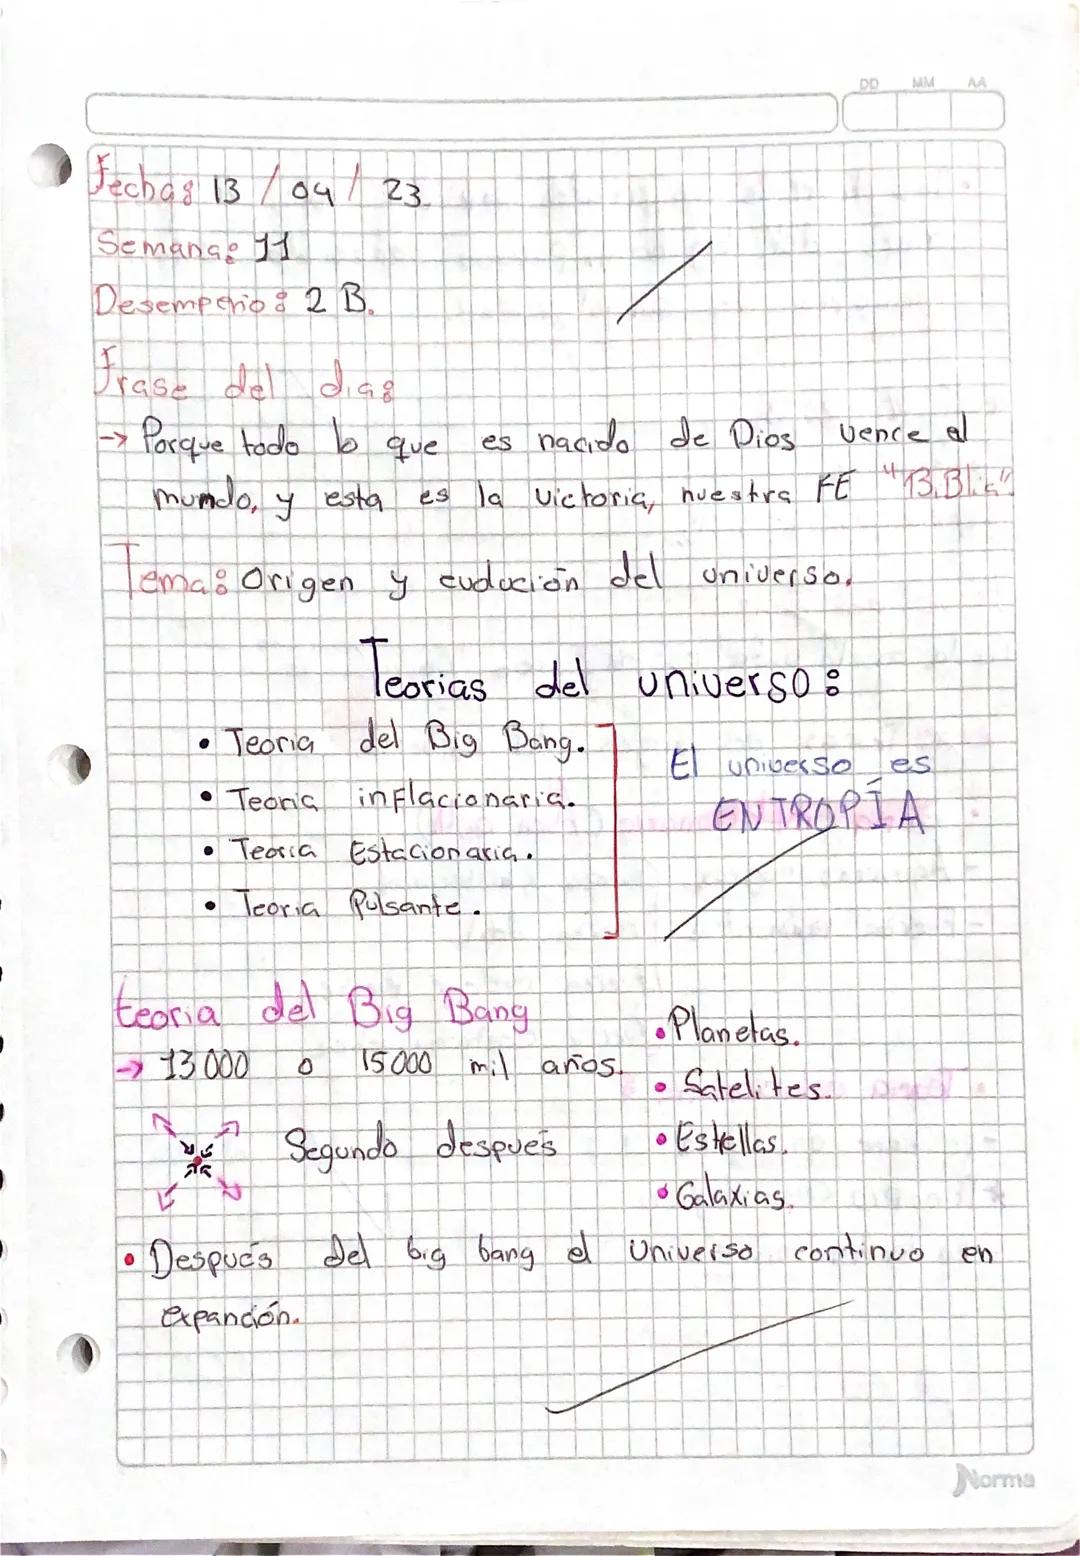 DD MM AA
Fecha: 13 / 04 / 23.
Semana: 11
Desempeño: 2 B.
Frase del dia:
→ Porque todo lo que es nacido de Dios vence el
mundo, y esta es la victoria, nuestra FE "Biblia"
Tema: Origen y evolución del universo.
Teorias del universo:
• Teoria del Big Bang.
• Teoria inflacionaria.
• Teoria Estacionaria.
• Teoria Pulsante.
El universo es
ENTROPÍA
teoria del Big Bang
→ 13000 o 15000 mil años.
Segundo después
• Planetas.
• Satelites.
• Estrellas.
• Galaxias.
• Después del big bang el Universo continuo en
expanción.
Norma